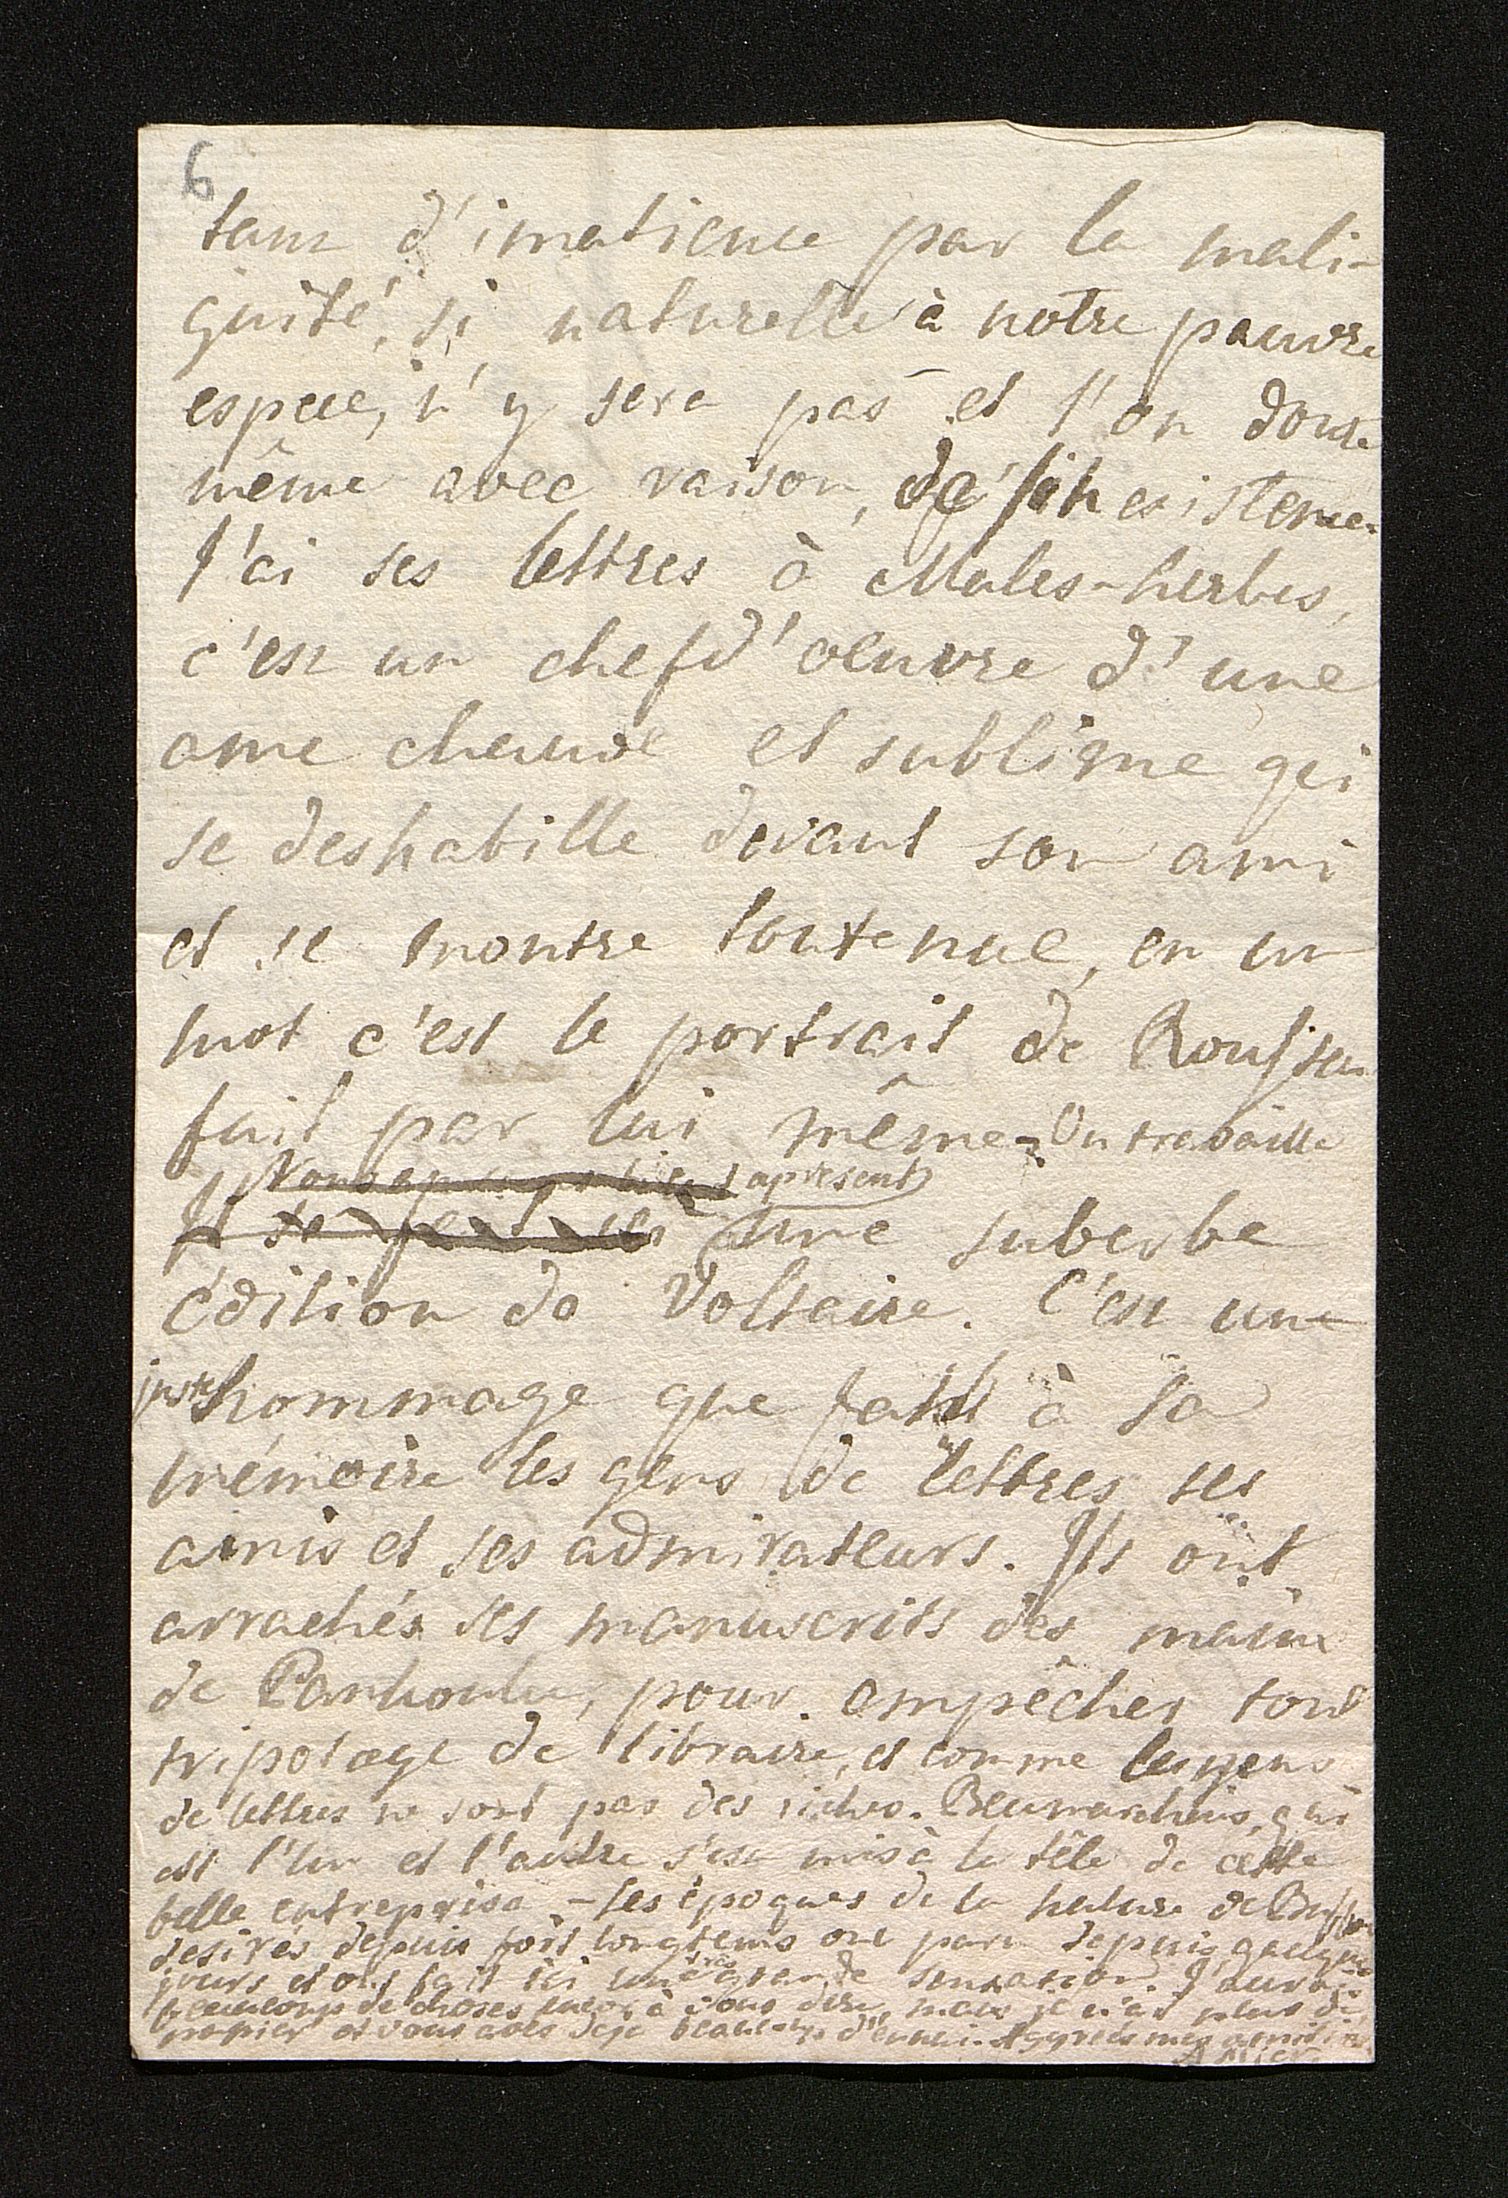 6
tant d'imatience par la mali-
gnité, si naturelle à notre pauvre
espece, n'y sera pas et l'on doute
même avec raison, de son existence.
J'ai ses lettres à Males-herbes,
c'est un chef d'oeuvre d'une
ame chaude et sublime qui
se deshabille devant son ami
et se montre toute nue, en un
mot c'est le portrait de Rousseau
fait par lui même - On travaille
apresent
une suberbe
édition de Voltaire. C'est une
juste hommage que font à sa
mémoire les gens de lettres ses
amis et ses admirateurs. Ils ont
arrachés ses manuscrits des mains
de Pankouke, pour empêcher tout
tripotage de libraire, et comme les gens
de lettres ne sont pas des riches. Beaumarchais, qui
est l'un et l'autre s'est mis à la tête de cette
belle entreprise - les époques de la nature de Buffon
desirés depuis fort longtems ont paru depuis quelques
jours et ont fait ici une très grande sensation. J'aurais
beaucoup de choses encor à vous dire, mais je n'ai plus de
papier et vous avés deja beaucoup d'ennui. Aggréés mes amitiés